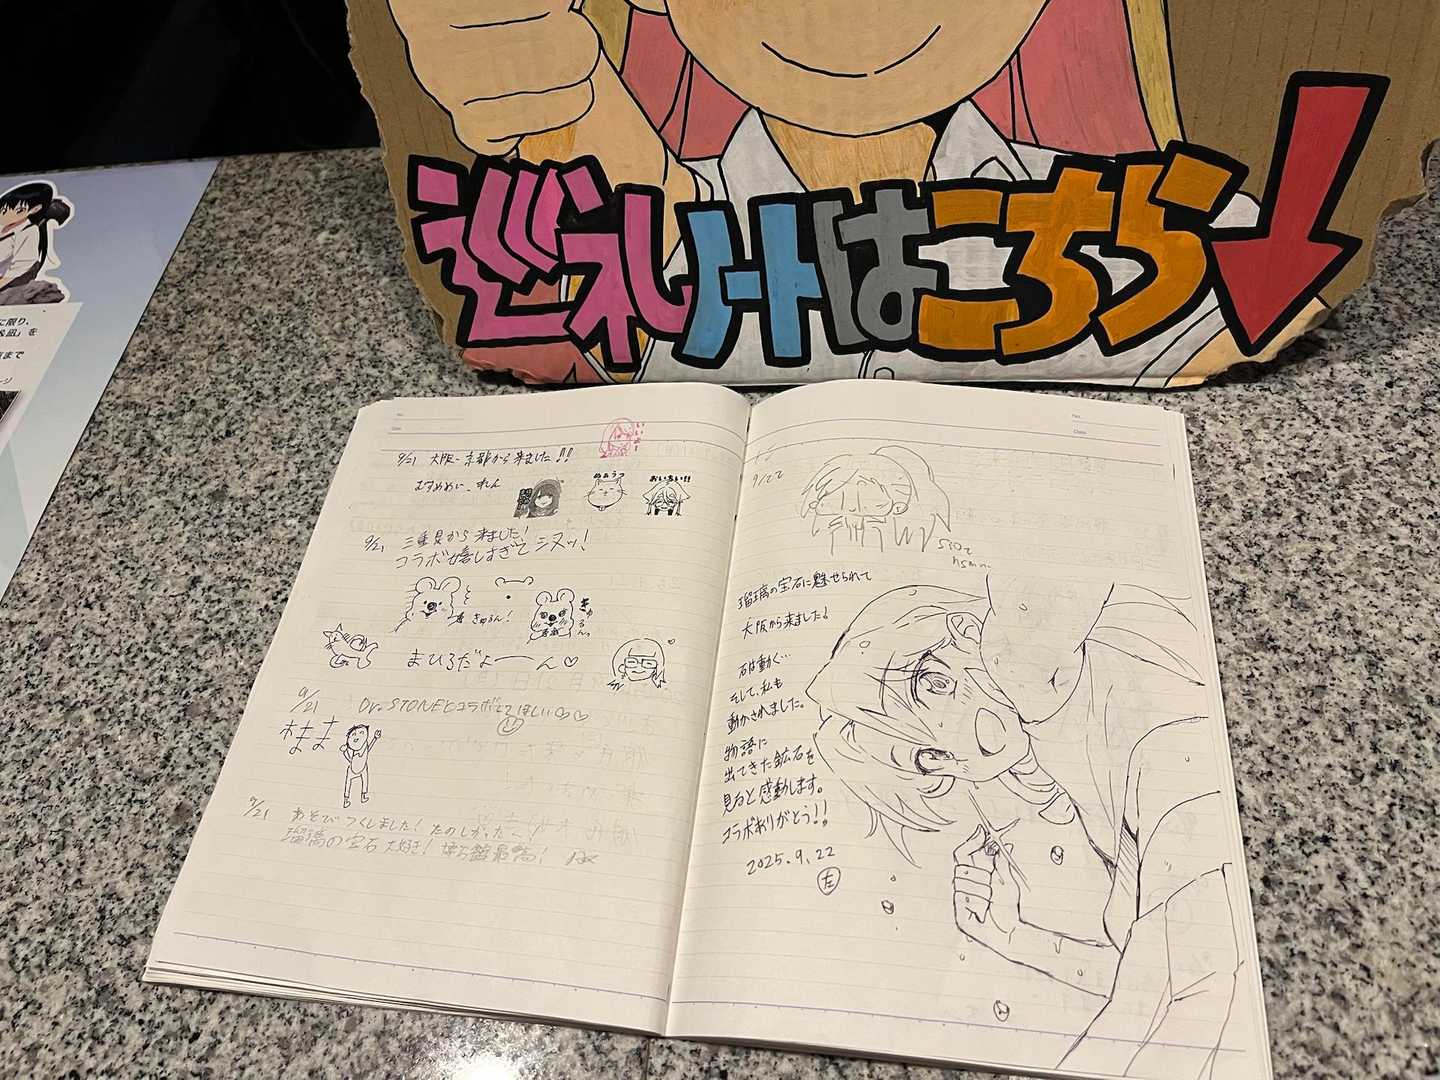 巡礼ノートはこちら
に限り、
&凪」を
まで
ージ
No.
Date
いいよー
9/21 大阪-京都から来ました!!
ぬぁぅっ
おいちい!!
9/21 三重県から来ました!
コラボ嬉しすぎて シヌッ!
きゅるん!
きゅるん
まひろだよーーん♡
9/21
Dr.STONEとコラボしてほしい♡♡
9/21 あそびつくしました! たのしかったー!
瑠璃の宝石 大好き!
No.
Date
9/22
瑠璃の宝石に魅せられて
大阪から来ました!
石は動く…
そして、私も
動かされました。
物語に
出てきた鉱石を
見ると感動します。
コラボありがとう!!
2025.9.22
左